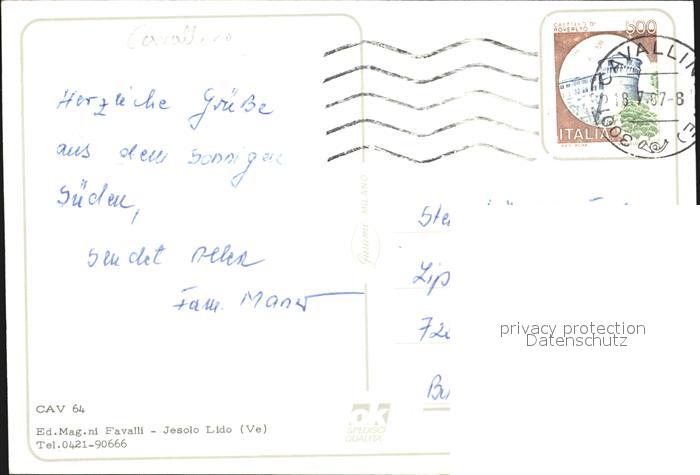 Cavallino
CASTELLO DI
ROVERETO
500
ITALIA
CAVALLINO
18.7.87-8
300
Herzliche Grüße
aus dem sonnigen
Süden,
sendet
Fam.
MILANO
Lip
72
privacy protection
Datenschutz
CAV 64
Ed.Mag.ni Favalli - Jesolo Lido (Ve)
Tel.0421-90666
ok
SPEDISCI
QUALITÀ